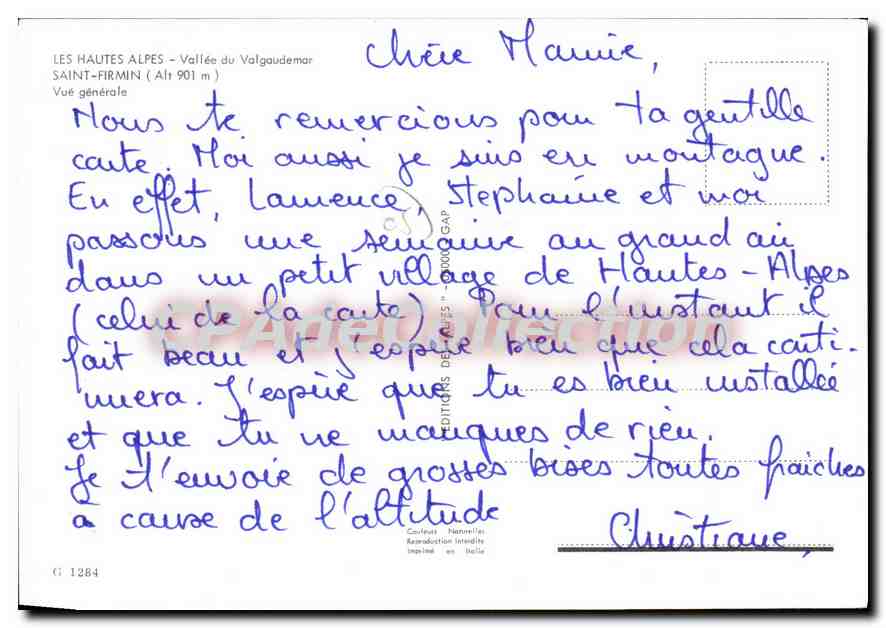 LES HAUTES ALPES - Vallée du Valgaudemar
SAINT-FIRMIN (Alt 901 m)
Vue générale
Chère Mamie,
Nous te remercions pour ta gentille
carte. Moi aussi je suis en montagne.
En effet, Laurence, Stephanie et moi
passons une semaine au grand air
dans un petit village de Hautes-Alpes
(celui de la carte). Pour l'instant il
fait beau et j'espère bien que cela conti-
nuera. J'espère que tu es bien installée
et que tu ne manques de rien.
Je t'envoie de grosses bises toutes fraiches
à cause de l'altitude
Christiane,
EDITIONS DES ALPES" - 05000 GAP
05
CPAneCollection
Couleurs Naturelles
Reproduction Interdite
Imprimé en Italie
G 1284